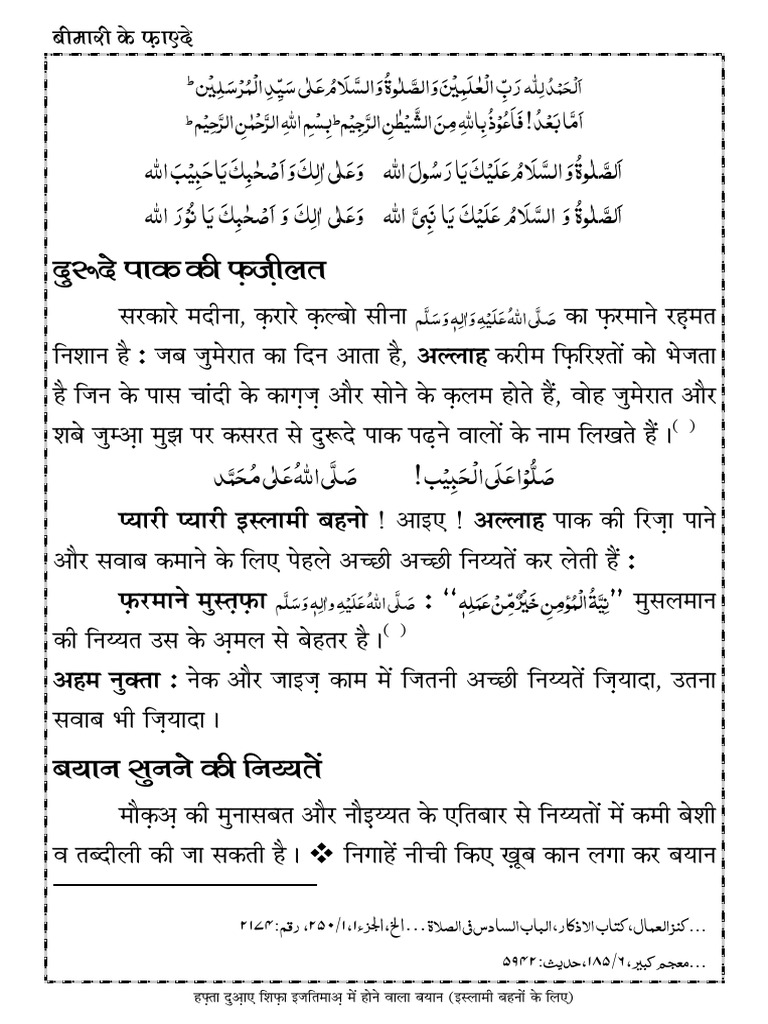 बीमारी के फ़ाएदे
اَلْحَمْدُ لِلّٰهِ رَبِّ الْعٰلَمِيْنَ وَالصَّلٰوةُ وَالسَّلَامُ عَلٰى سَيِّدِ الْمُرْسَلِيْنَ ؕ
اَمَّا بَعْدُ! فَاَعُوْذُ بِاللهِ مِنَ الشَّيْطٰنِ الرَّجِيْمِ ؕ بِسْمِ اللهِ الرَّحْمٰنِ الرَّحِيْمِ ؕ
اَلصَّلٰوةُ وَالسَّلَامُ عَلَيْكَ يَا رَسُولَ الله وَعَلٰى اٰلِكَ وَاَصْحٰبِكَ يَا حَبِيْبَ الله
اَلصَّلٰوةُ وَ السَّلَامُ عَلَيْكَ يَا نَبِيَّ الله وَعَلٰى اٰلِكَ وَ اَصْحٰبِكَ يَا نُوْرَ الله
दुरूदे पाक की फ़ज़ीलत
सरकारे मदीना, क़रारे क़ल्बो सीना صَلَّى اللهُ عَلَيْهِ وَاٰلِهٖ وَسَلَّم का फ़रमाने रह़मत
निशान है : जब जुमेरात का दिन आता है, अल्लाह करीम फ़िरिश्तों को भेजता
है जिन के पास चांदी के काग़ज़ और सोने के क़लम होते हैं, वोह जुमेरात और
शबे जुम्अ़ा मुझ पर कसरत से दुरूदे पाक पढ़ने वालों के नाम लिखते हैं ।( )
صَلُّوْا عَلَى الْحَبِيْب! صَلَّى اللهُ عَلٰى مُحَمَّد
प्यारी प्यारी इस्लामी बहनो ! आइए ! अल्लाह पाक की रिज़ा पाने
और सवाब कमाने के लिए पेहले अच्छी अच्छी निय्यतें कर लेती हैं :
फ़रमाने मुस्त़फ़ा صَلَّى اللهُ عَلَيْهِ واٰلِهٖ وَسَلَّم : ‘‘نِيَّةُ الْمُؤْمِنِ خَيْرٌ مِّنْ عَمَلِهٖ’’ मुसलमान
की निय्यत उस के अ़मल से बेहतर है ।( )
अहम नुक्ता : नेक और जाइज़ काम में जितनी अच्छी निय्यतें ज़ियादा, उतना
सवाब भी ज़ियादा ।
बयान सुनने की निय्यतें
मौक़अ़ की मुनासबत और नौइ़य्यत के एतिबार से निय्यतों में कमी बेशी
व तब्दीली की जा सकती है । ❖ निगाहें नीची किए ख़ूब कान लगा कर बयान
...کنزالعمال، کتاب الاذکار، الباب السادس فی الصلاۃ...الخ، الجزء۱، ۲۵۰/۱، رقم: ۲۱۷۴
...معجم کبیر، ۱۸۵/۶، حدیث: ۵۹۴۲
हफ़्ता दुआ़ए शिफ़ा इजतिमाअ़ में होने वाला बयान (इस्लामी बहनों के लिए)